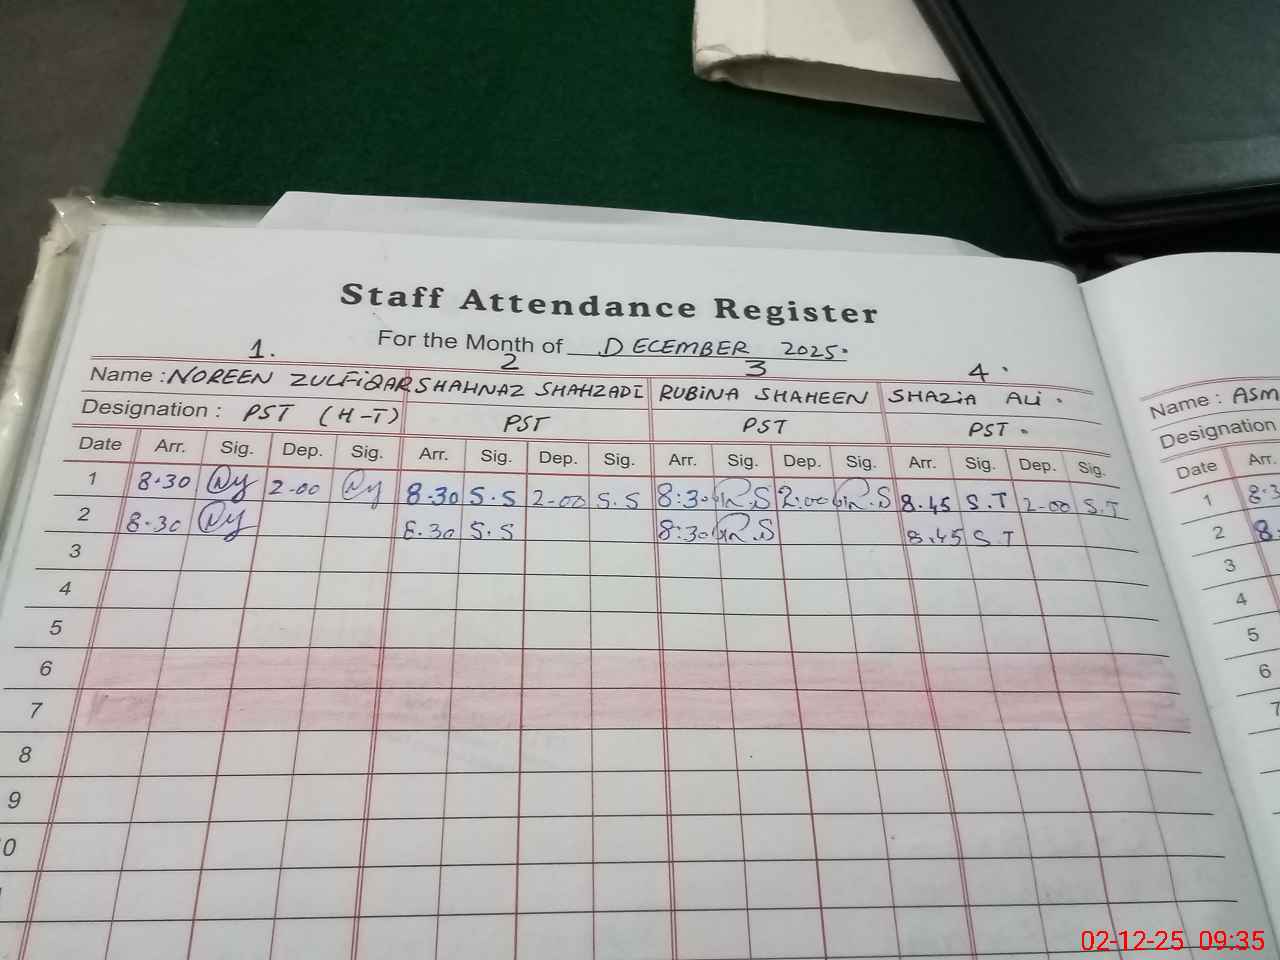 Staff Attendance Register
For the Month of DECEMBER 2025.
1. 2 3 4.
Name : NOREEN ZULFiQAR SHAHNAZ SHAHZADI RUBiNA SHAHEEN SHAZiA ALi . Name : ASM
Designation : PST (H-T) PST PST PST . Designation
Date Arr. Sig. Dep. Sig. Arr. Sig. Dep. Sig. Arr. Sig. Dep. Sig. Arr. Sig. Dep. Sig. Date Arr.
1 8.30 2-00 8.30 S.S 2-00 S.S 8:30 R.S 2:00 R.S 8.45 S.T 2-00 S.T 1 8:3
2 8.30 8.30 S.S 8:30 R.S 8.45 S.T 2 8:
3 3
4 4
5 5
6 6
7 7
8
9
0
02-12-25 09:35